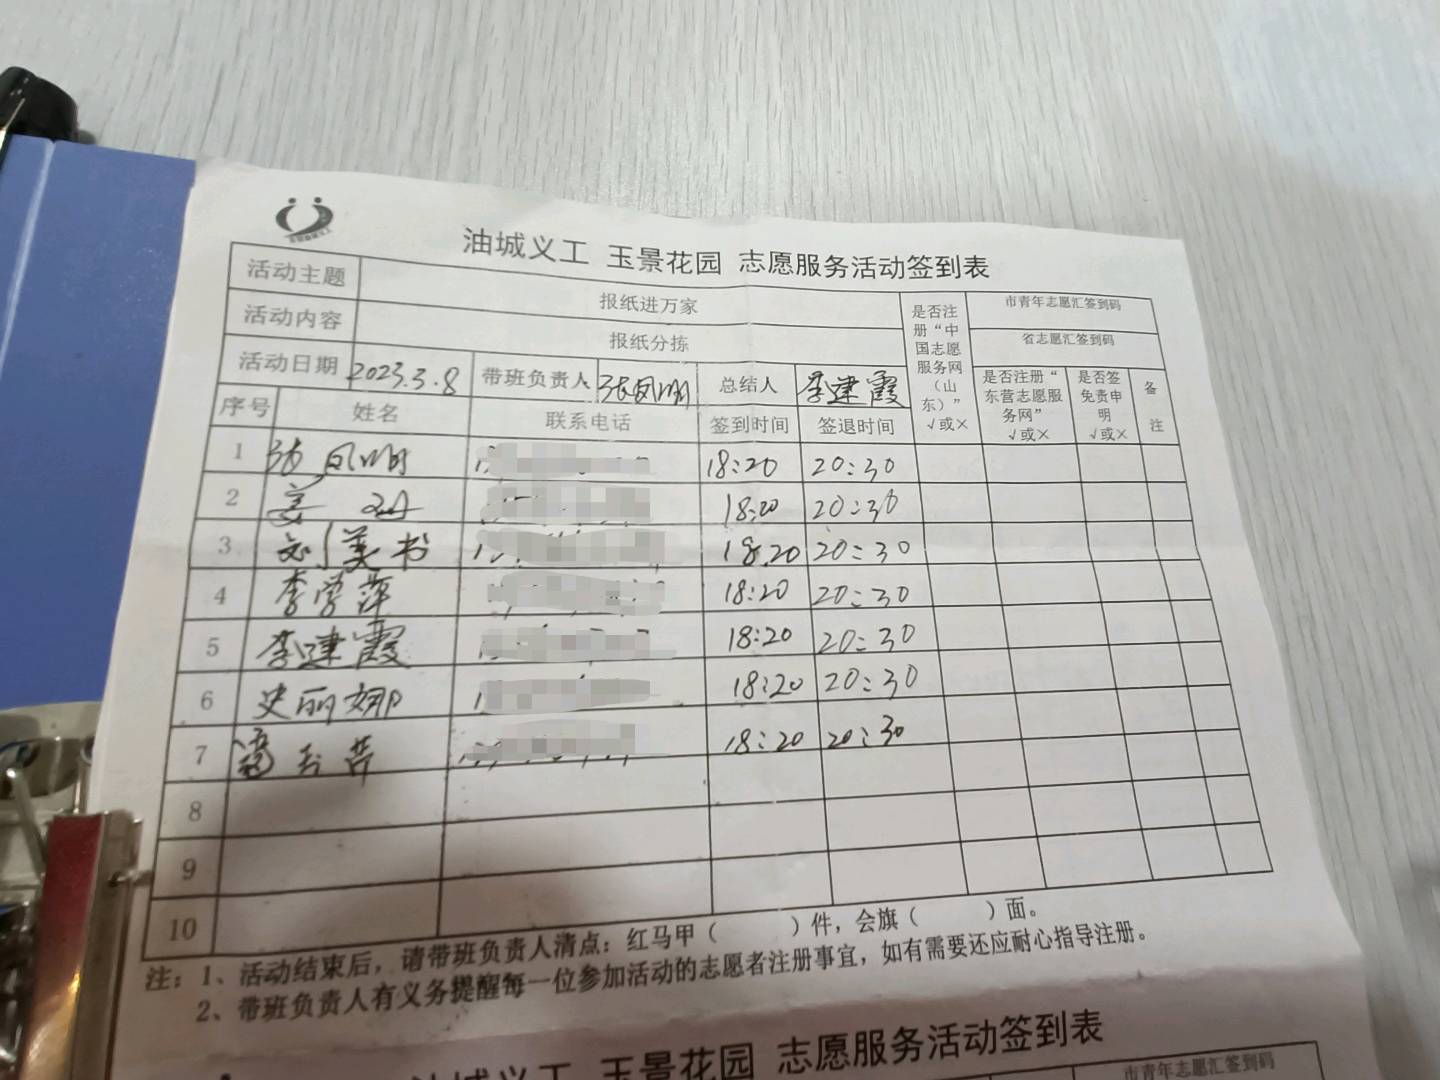 油城义工 玉景花园 志愿服务活动签到表
活动主题 报纸进万家 是否注册“中国志愿服务网（山东）”√或× 市青年志愿汇签到码
活动内容 报纸分拣 省志愿汇签到码
活动日期 2023.3.8 带班负责人 张凤 总结人 李建霞 是否注册“东营志愿服务网”√或× 是否签免责申明√或× 备注
序号 姓名 联系电话 签到时间 签退时间
1 张凤 18:20 20:30
2 姜 18:20 20:30
3 刘美书 18:20 20:30
4 李学萍 18:20 20:30
5 李建霞 18:20 20:30
6 史丽娜 18:20 20:30
7 18:20 20:30
8
9
10
注：1、活动结束后，请带班负责人清点：红马甲（ ）件，会旗（ ）面。
2、带班负责人有义务提醒每一位参加活动的志愿者注册事宜，如有需要还应耐心指导注册。
油城义工 玉景花园 志愿服务活动签到表
市青年志愿汇签到码